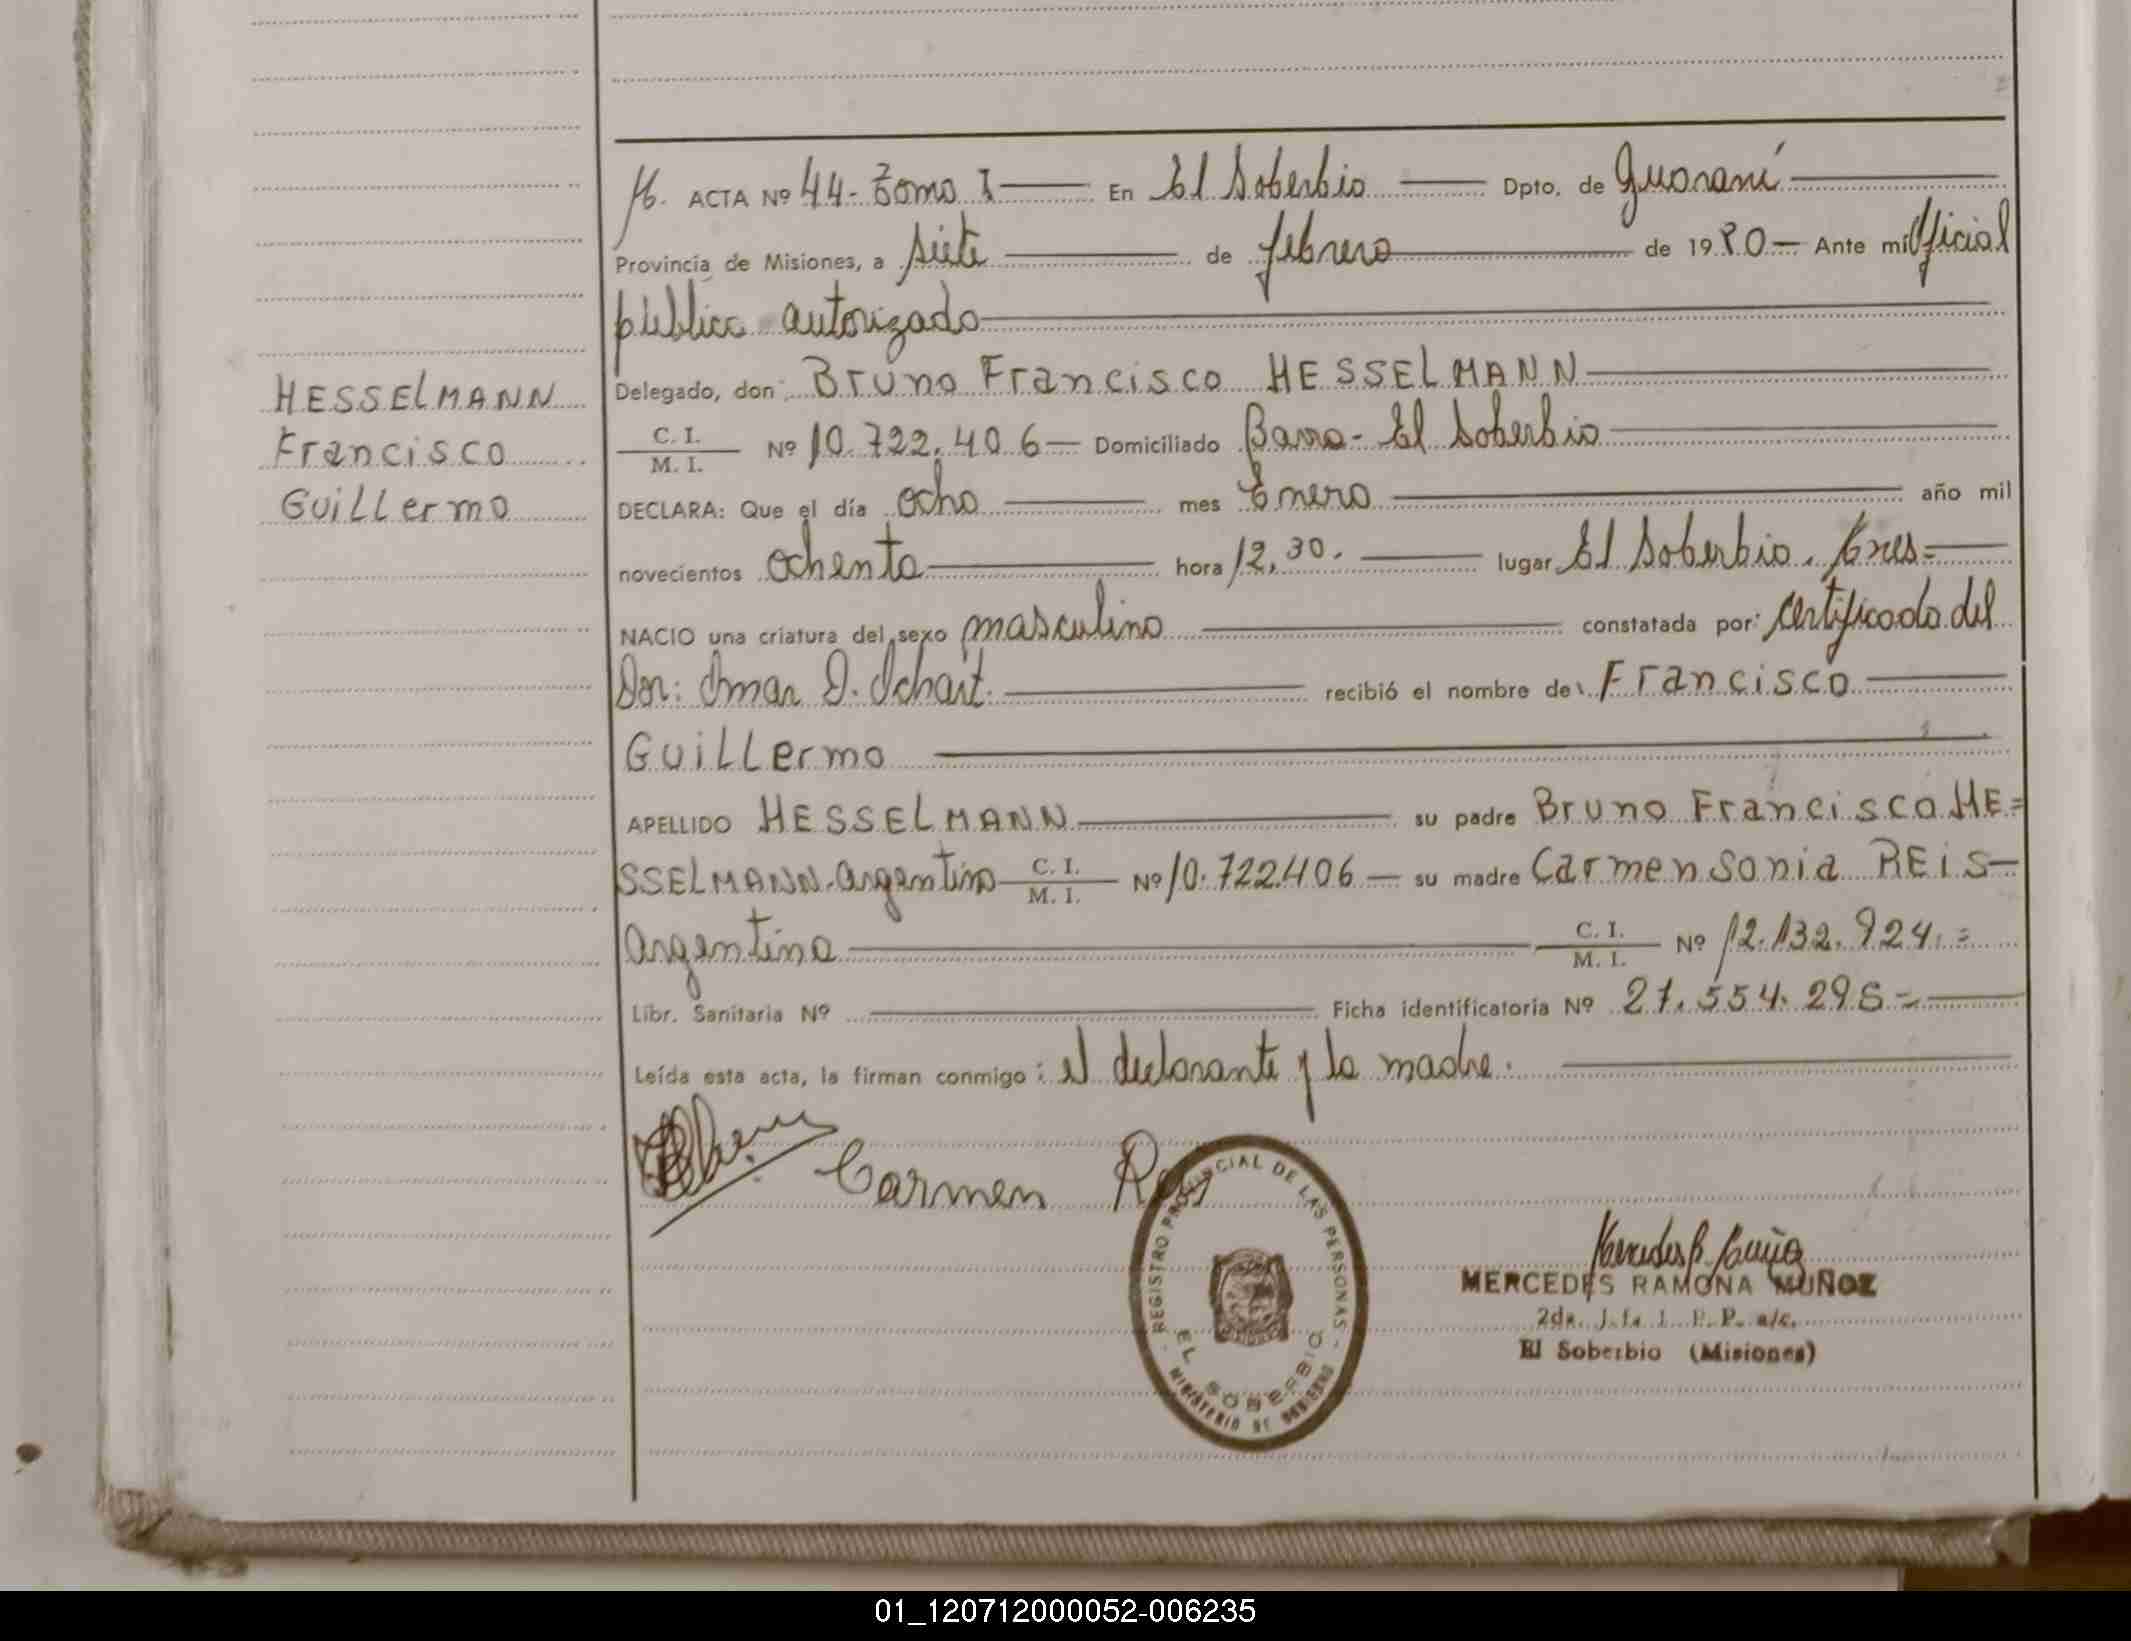 ACTA Nº 44- Tomo I En El Soberbio Dpto. de Guaraní
Provincia de Misiones, a siete de febrero de 1980 Ante mi Oficial
público autorizado
HESSELMANN
Francisco
Guillermo
Delegado, don: Bruno Francisco HESSELMANN
C. I.
M. I. Nº 10.722.406 Domiciliado Barra- El Soberbio
DECLARA: Que el día ocho mes Enero año mil
novecientos ochenta hora 12,30. lugar El Soberbio.
NACIO una criatura del sexo masculino constatada por: Certificado del
Omar D. recibió el nombre de: Francisco
Guillermo
APELLIDO HESSELMANN su padre Bruno Francisco HE=
SSELMANN. argentino C. I.
M. I. Nº 10.722.406 su madre Carmen Sonia REIS
argentina C. I.
M. I. Nº 12.132.924.=
Libr. Sanitaria Nº Ficha identificatoria Nº 27.554.298=
Leída esta acta, la firman conmigo: el declarante y la madre.
Carmen
REGISTRO PROVINCIAL DE LAS PERSONAS
EL SOBERBIO
MINISTERIO DE GOBIERNO
MERCEDES RAMONA MUÑOZ
El Soberbio (Misiones)
01_120712000052-006235